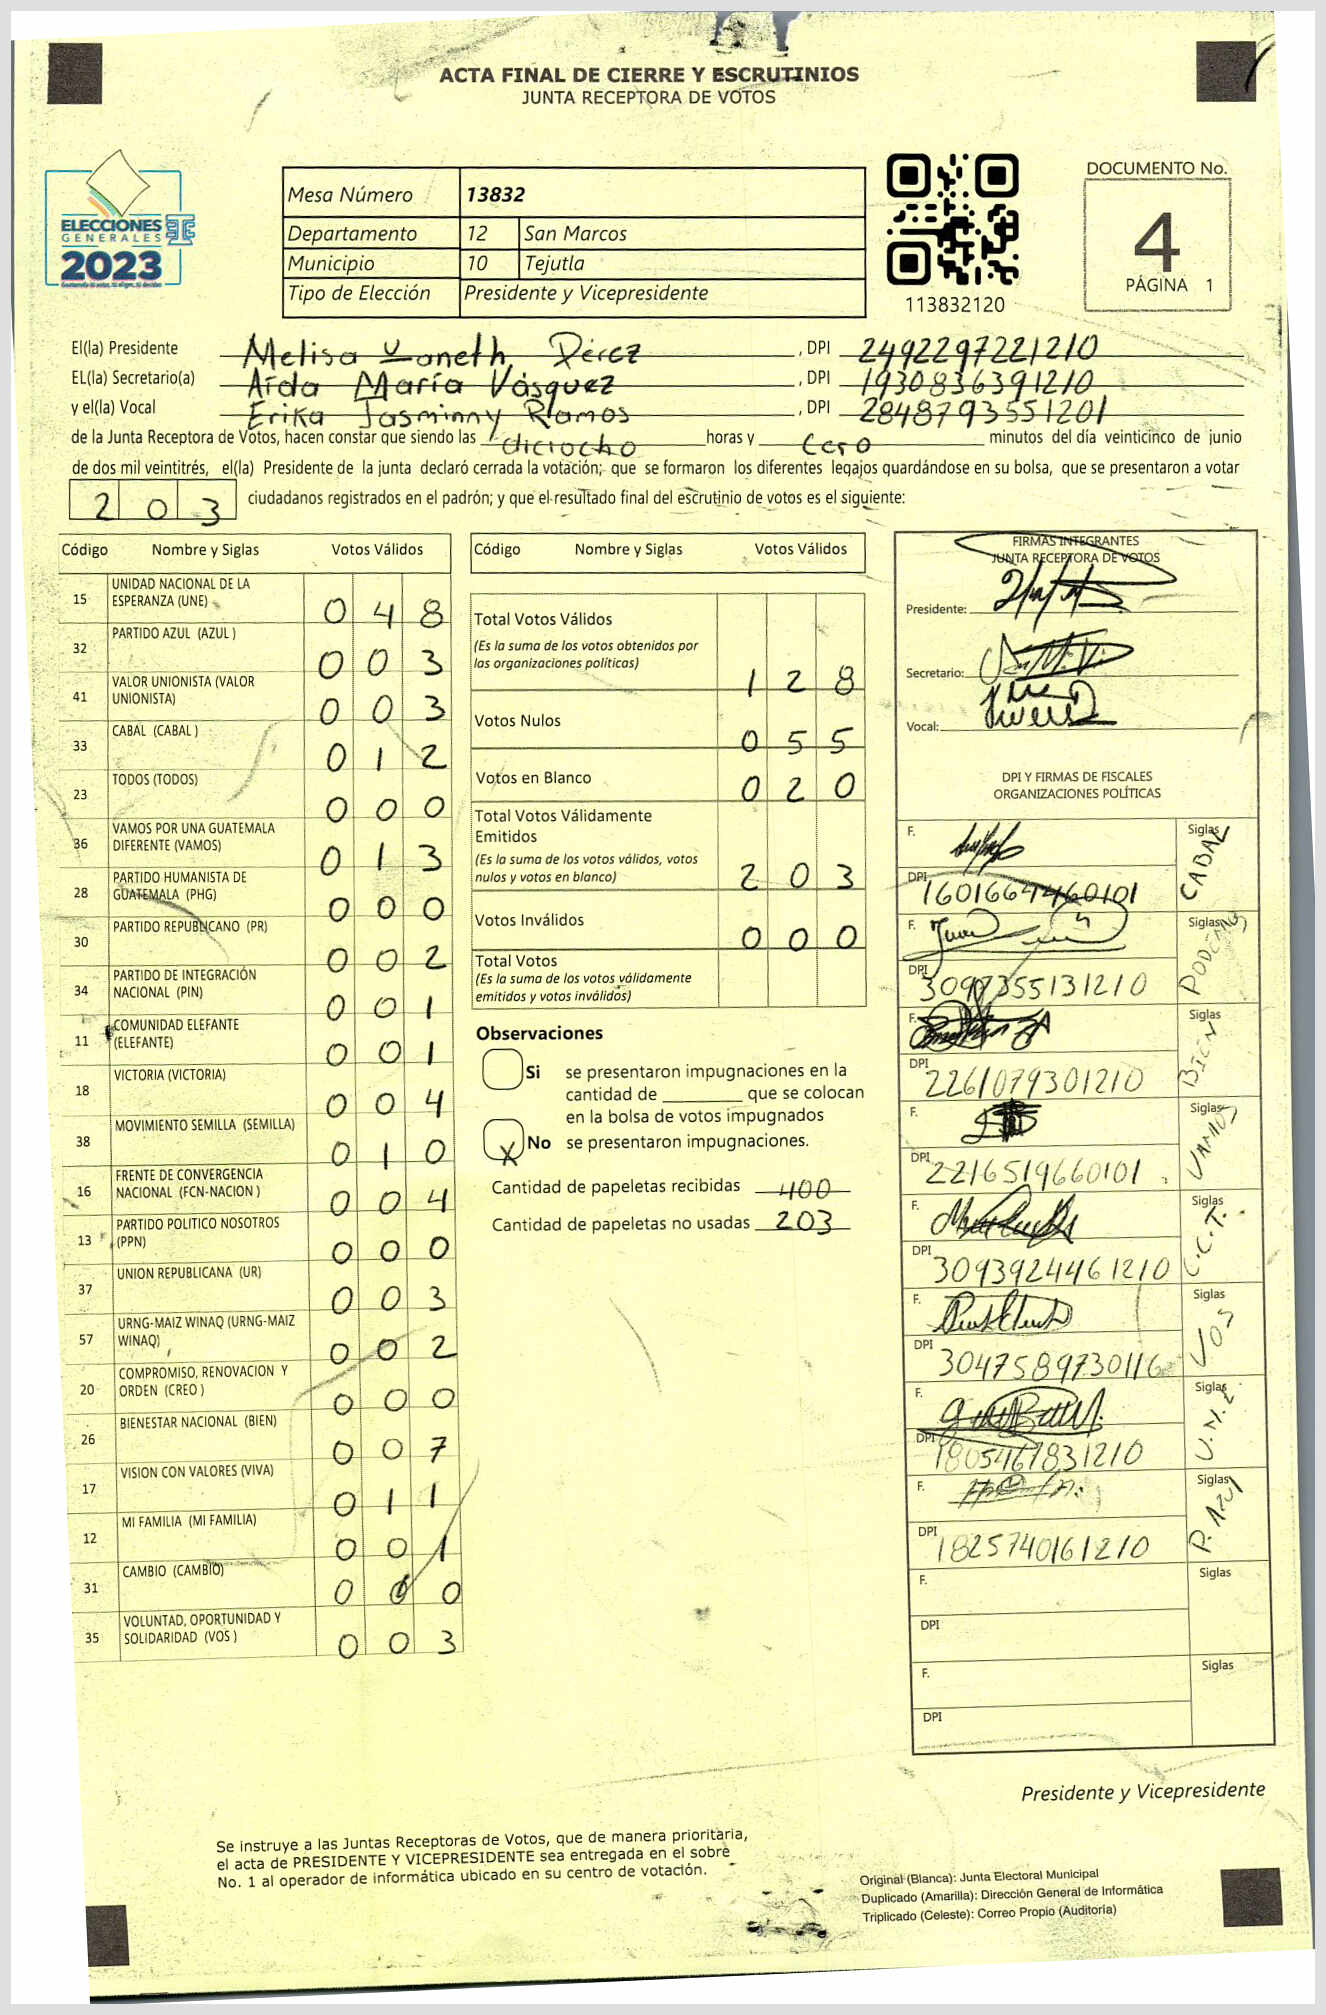 ACTA FINAL DE CIERRE Y ESCRUTINIOS
JUNTA RECEPTORA DE VOTOS
ELECCIONES
GENERALES
2023
Mesa Número 13832
Departamento 12 San Marcos
Municipio 10 Tejutla
Tipo de Elección Presidente y Vicepresidente
113832120
DOCUMENTO No.
4
PÁGINA 1
El(la) Presidente Melisa Yaneth Pérez , DPI 2492297221210
EL(la) Secretario(a) Aída María Vásquez , DPI 1930836391210
y el(la) Vocal Erika Jasminny Ramos , DPI 2848793551201
de la Junta Receptora de Votos, hacen constar que siendo las diciocho horas y cero minutos del día veinticinco de junio
de dos mil veintitrés, el(la) Presidente de la junta declaró cerrada la votación; que se formaron los diferentes legajos guardándose en su bolsa, que se presentaron a votar
203 ciudadanos registrados en el padrón; y que el resultado final del escrutinio de votos es el siguiente:
Código Nombre y Siglas Votos Válidos
15 UNIDAD NACIONAL DE LA ESPERANZA (UNE) 0 4 8
32 PARTIDO AZUL (AZUL ) 0 0 3
41 VALOR UNIONISTA (VALOR UNIONISTA) 0 0 3
33 CABAL (CABAL ) 0 1 2
23 TODOS (TODOS) 0 0 0
36 VAMOS POR UNA GUATEMALA DIFERENTE (VAMOS) 0 1 3
28 PARTIDO HUMANISTA DE GUATEMALA (PHG) 0 0 0
30 PARTIDO REPUBLICANO (PR) 0 0 2
34 PARTIDO DE INTEGRACIÓN NACIONAL (PIN) 0 0 1
11 COMUNIDAD ELEFANTE (ELEFANTE) 0 0 1
18 VICTORIA (VICTORIA) 0 0 4
38 MOVIMIENTO SEMILLA (SEMILLA) 0 1 0
16 FRENTE DE CONVERGENCIA NACIONAL (FCN-NACION ) 0 0 4
13 PARTIDO POLITICO NOSOTROS (PPN) 0 0 0
37 UNION REPUBLICANA (UR) 0 0 3
57 URNG-MAIZ WINAQ (URNG-MAIZ WINAQ) 0 0 2
20 COMPROMISO, RENOVACION Y ORDEN (CREO ) 0 0 0
26 BIENESTAR NACIONAL (BIEN) 0 0 7
17 VISION CON VALORES (VIVA) 0 1 1
12 MI FAMILIA (MI FAMILIA) 0 0 1
31 CAMBIO (CAMBIO) 0 0 0
35 VOLUNTAD, OPORTUNIDAD Y SOLIDARIDAD (VOS ) 0 0 3
Código Nombre y Siglas Votos Válidos
Total Votos Válidos
(Es la suma de los votos obtenidos por
las organizaciones políticas) 1 2 8
Votos Nulos 0 5 5
Votos en Blanco 0 2 0
Total Votos Válidamente
Emitidos
(Es la suma de los votos válidos, votos
nulos y votos en blanco) 2 0 3
Votos Inválidos 0 0 0
Total Votos
(Es la suma de los votos válidamente
emitidos y votos inválidos)
Observaciones
Si se presentaron impugnaciones en la
cantidad de ________ que se colocan
en la bolsa de votos impugnados
X No se presentaron impugnaciones.
Cantidad de papeletas recibidas 400
Cantidad de papeletas no usadas 203
FIRMAS INTEGRANTES
JUNTA RECEPTORA DE VOTOS
Presidente:
Secretario:
Vocal:
DPI Y FIRMAS DE FISCALES
ORGANIZACIONES POLÍTICAS
F. Siglas CABAL
DPI 1601664460101
F. Siglas PODEMOS
DPI 3097355131210
F. Siglas BIEN
DPI 2261079301210
F. Siglas VAMOS
DPI 2216519660101
F. Siglas C.C.T.
DPI 3093924461210
F. Siglas VOS
DPI 3047589730116
F. Siglas U.N.E
DPI 1805467831210
F. Siglas P. Azul
DPI 1825740161210
F. Siglas
DPI
F. Siglas
DPI
Presidente y Vicepresidente
Se instruye a las Juntas Receptoras de Votos, que de manera prioritaria,
el acta de PRESIDENTE Y VICEPRESIDENTE sea entregada en el sobre
No. 1 al operador de informática ubicado en su centro de votación.
Original (Blanca): Junta Electoral Municipal
Duplicado (Amarilla): Dirección General de Informática
Triplicado (Celeste): Correo Propio (Auditoría)